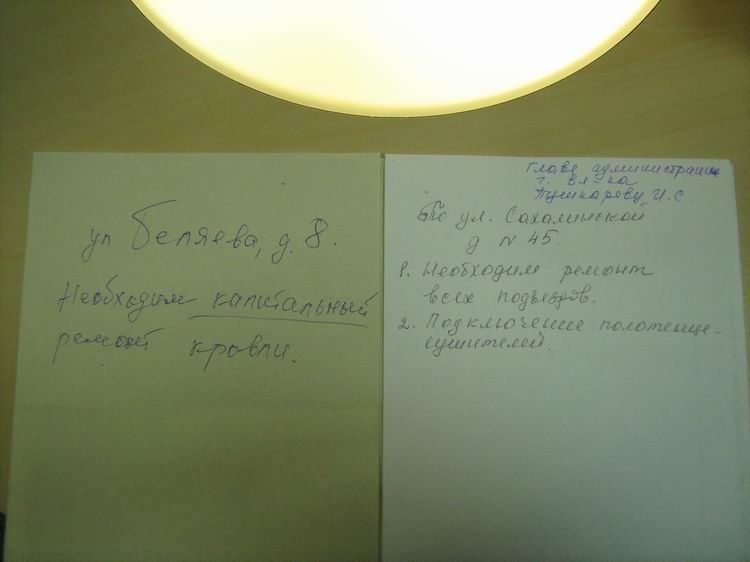 ул Беляева, д. 8.
Необходим капитальный
ремонт кровли.
Главе администрации
г. Вл-ка
Пушкареву И.С.
По ул. Сахалинской
д N 45.
1. Необходим ремонт
всех подъездов.
2. Подключение полотенце-
сушителей.